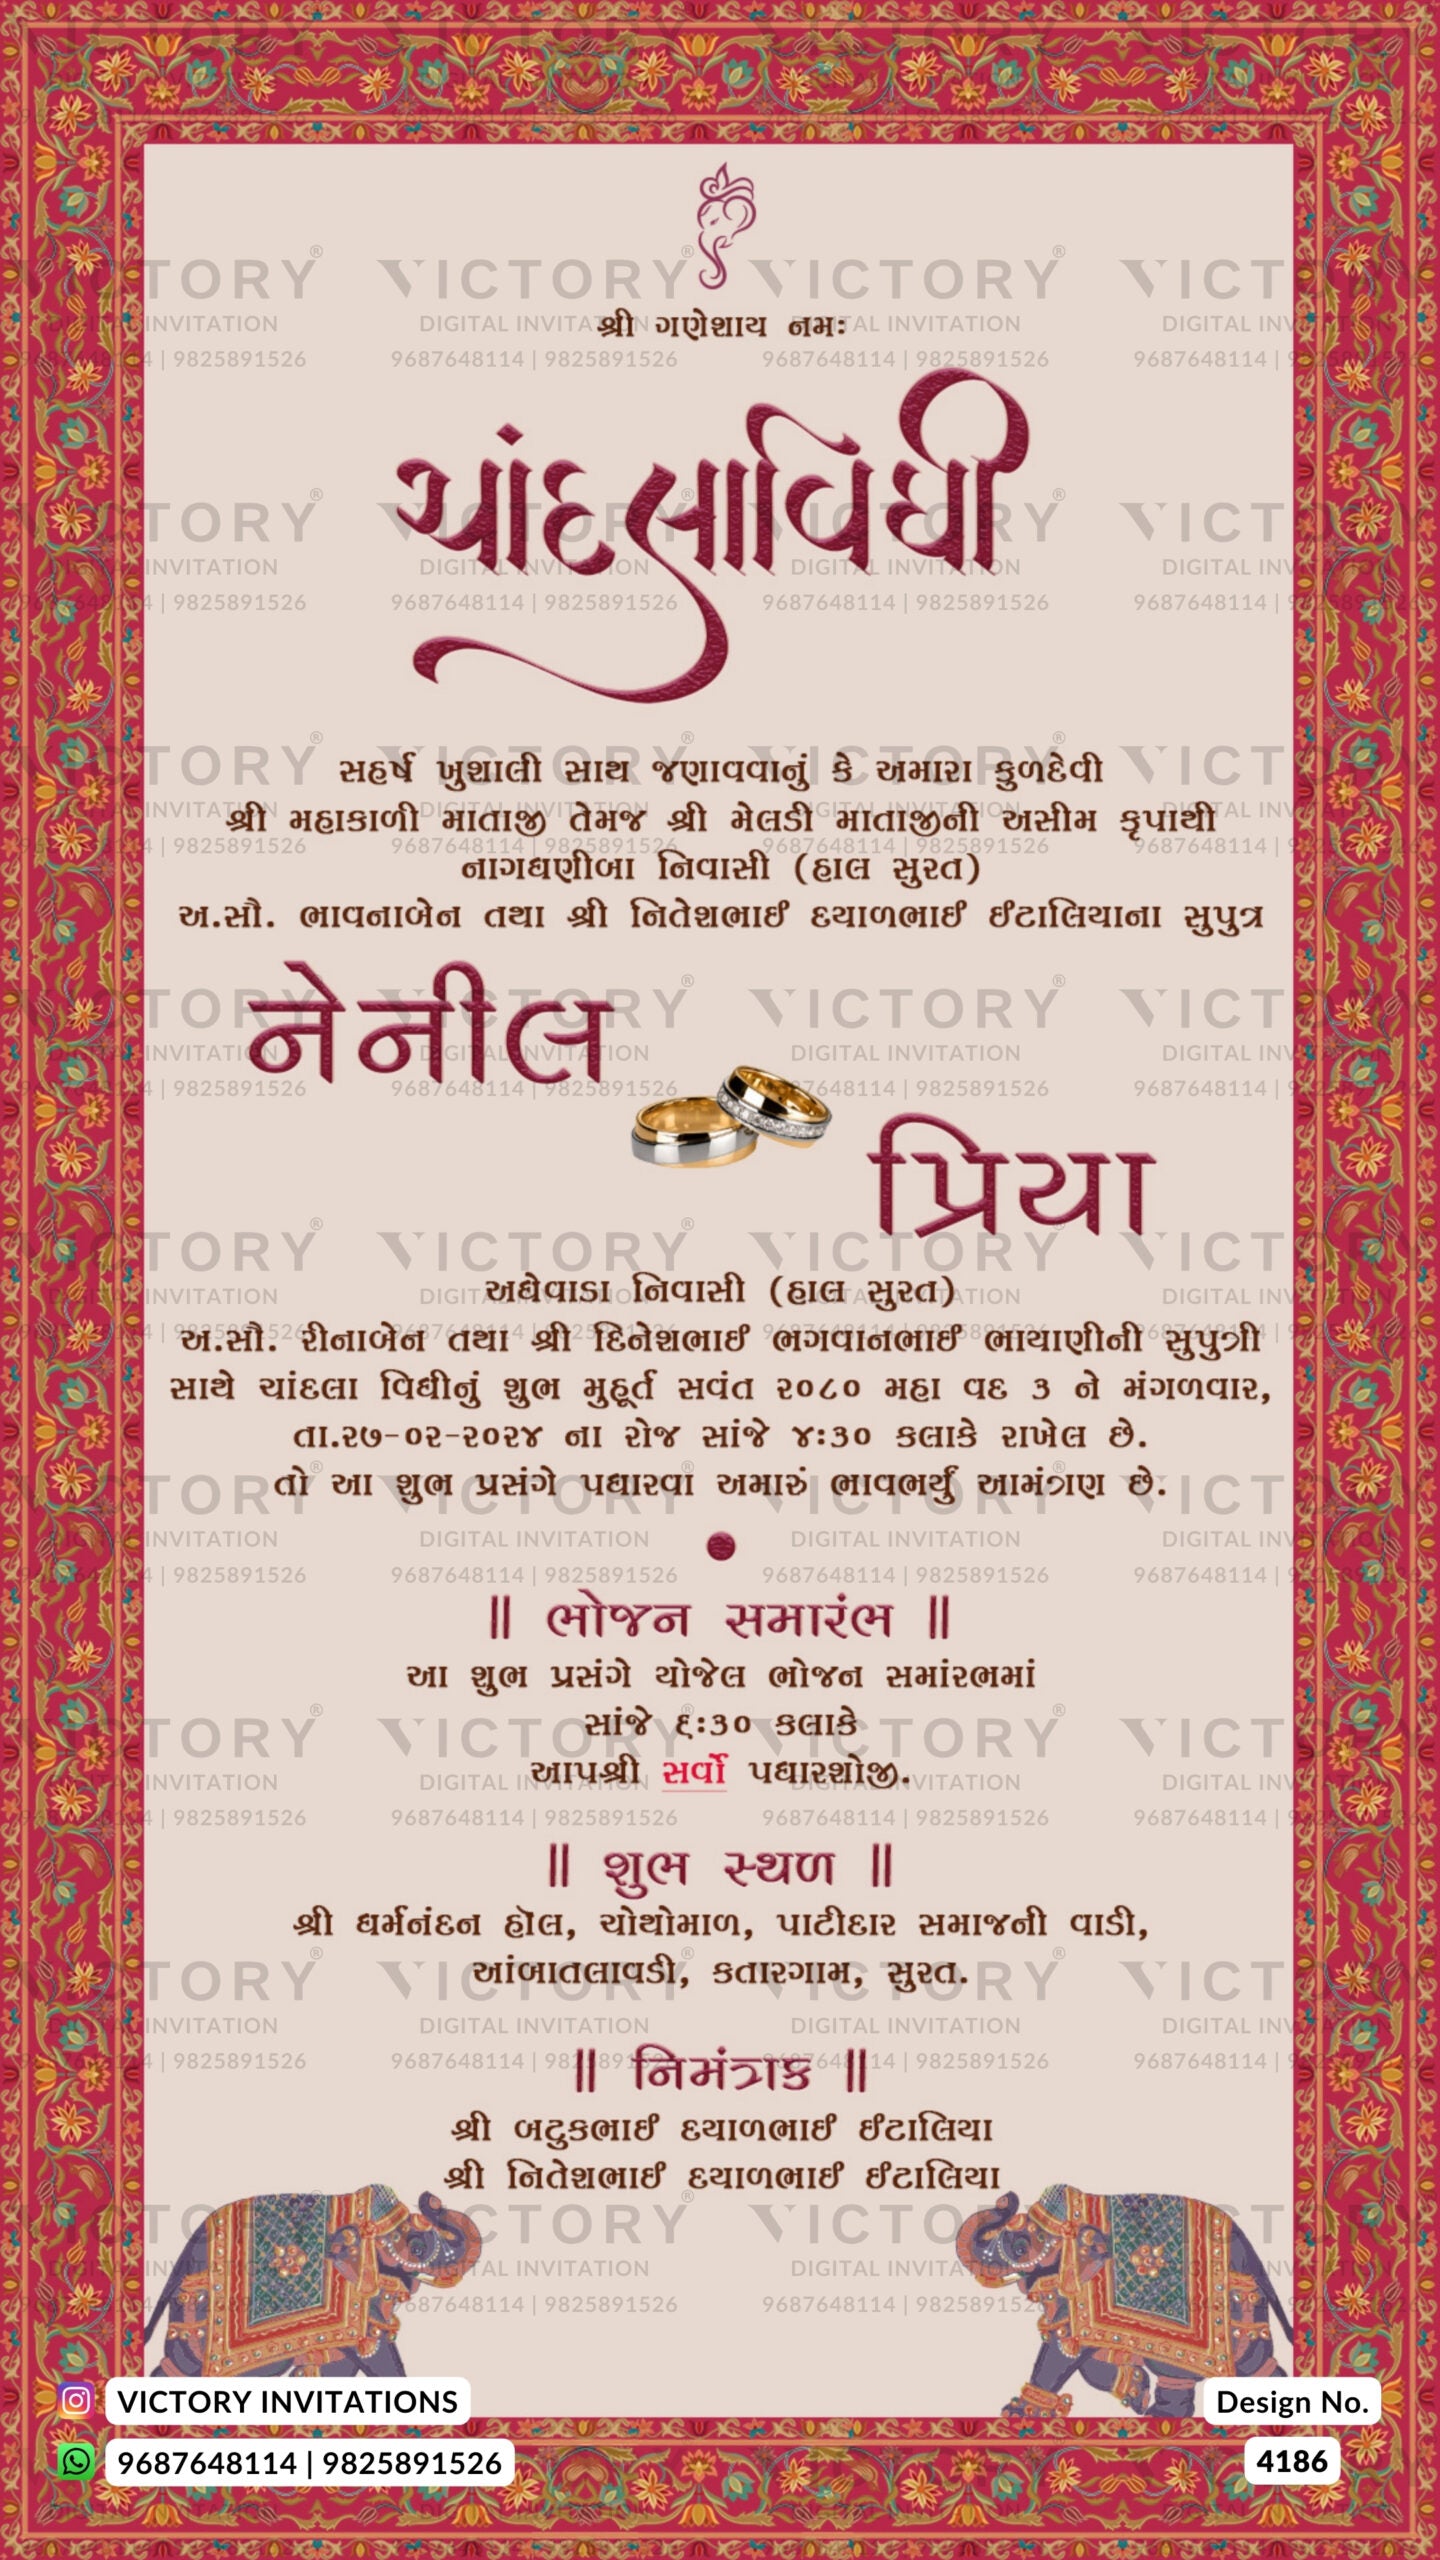 શ્રી ગણેશાય નમઃ
ચાંદલાવિધી
સહર્ષ ખુશાલી સાથ જણાવવાનું કે અમારા કુળદેવી
શ્રી મહાકાળી માતાજી તેમજ શ્રી મેલડી માતાજીની અસીમ કૃપાથી
નાગધણીબા નિવાસી (હાલ સુરત)
અ.સૌ. ભાવનાબેન તથા શ્રી નિતેશભાઈ દયાળભાઈ ઈટાલિયાના સુપુત્ર
નેનીલ
પ્રિયા
અધેવાડા નિવાસી (હાલ સુરત)
અ.સૌ. રીનાબેન તથા શ્રી દિનેશભાઈ ભગવાનભાઈ ભાયાણીની સુપુત્રી
સાથે ચાંદલા વિધીનું શુભ મુહૂર્ત સવંત ૨૦૮૦ મહા વદ ૩ ને મંગળવાર,
તા.૨૭-૦૨-૨૦૨૪ ના રોજ સાંજે ૪:૩૦ કલાકે રાખેલ છે.
તો આ શુભ પ્રસંગે પધારવા અમારું ભાવભર્યું આમંત્રણ છે.
॥ ભોજન સમારંભ ॥
આ શુભ પ્રસંગે યોજેલ ભોજન સમાંરભમાં
સાંજે ૬:૩૦ કલાકે
આપશ્રી સર્વો પધારશોજી.
॥ શુભ સ્થળ ॥
શ્રી ધર્મનંદન હૉલ, ચોથોમાળ, પાટીદાર સમાજની વાડી,
આંબાતલાવડી, કતારગામ, સુરત.
॥ નિમંત્રક ॥
શ્રી બટુકભાઈ દયાળભાઈ ઈટાલિયા
શ્રી નિતેશભાઈ દયાળભાઈ ઈટાલિયા
VICTORY INVITATIONS
Design No.
9687648114 | 9825891526
4186
VICTORY®
DIGITAL INVITATION
9687648114 | 9825891526